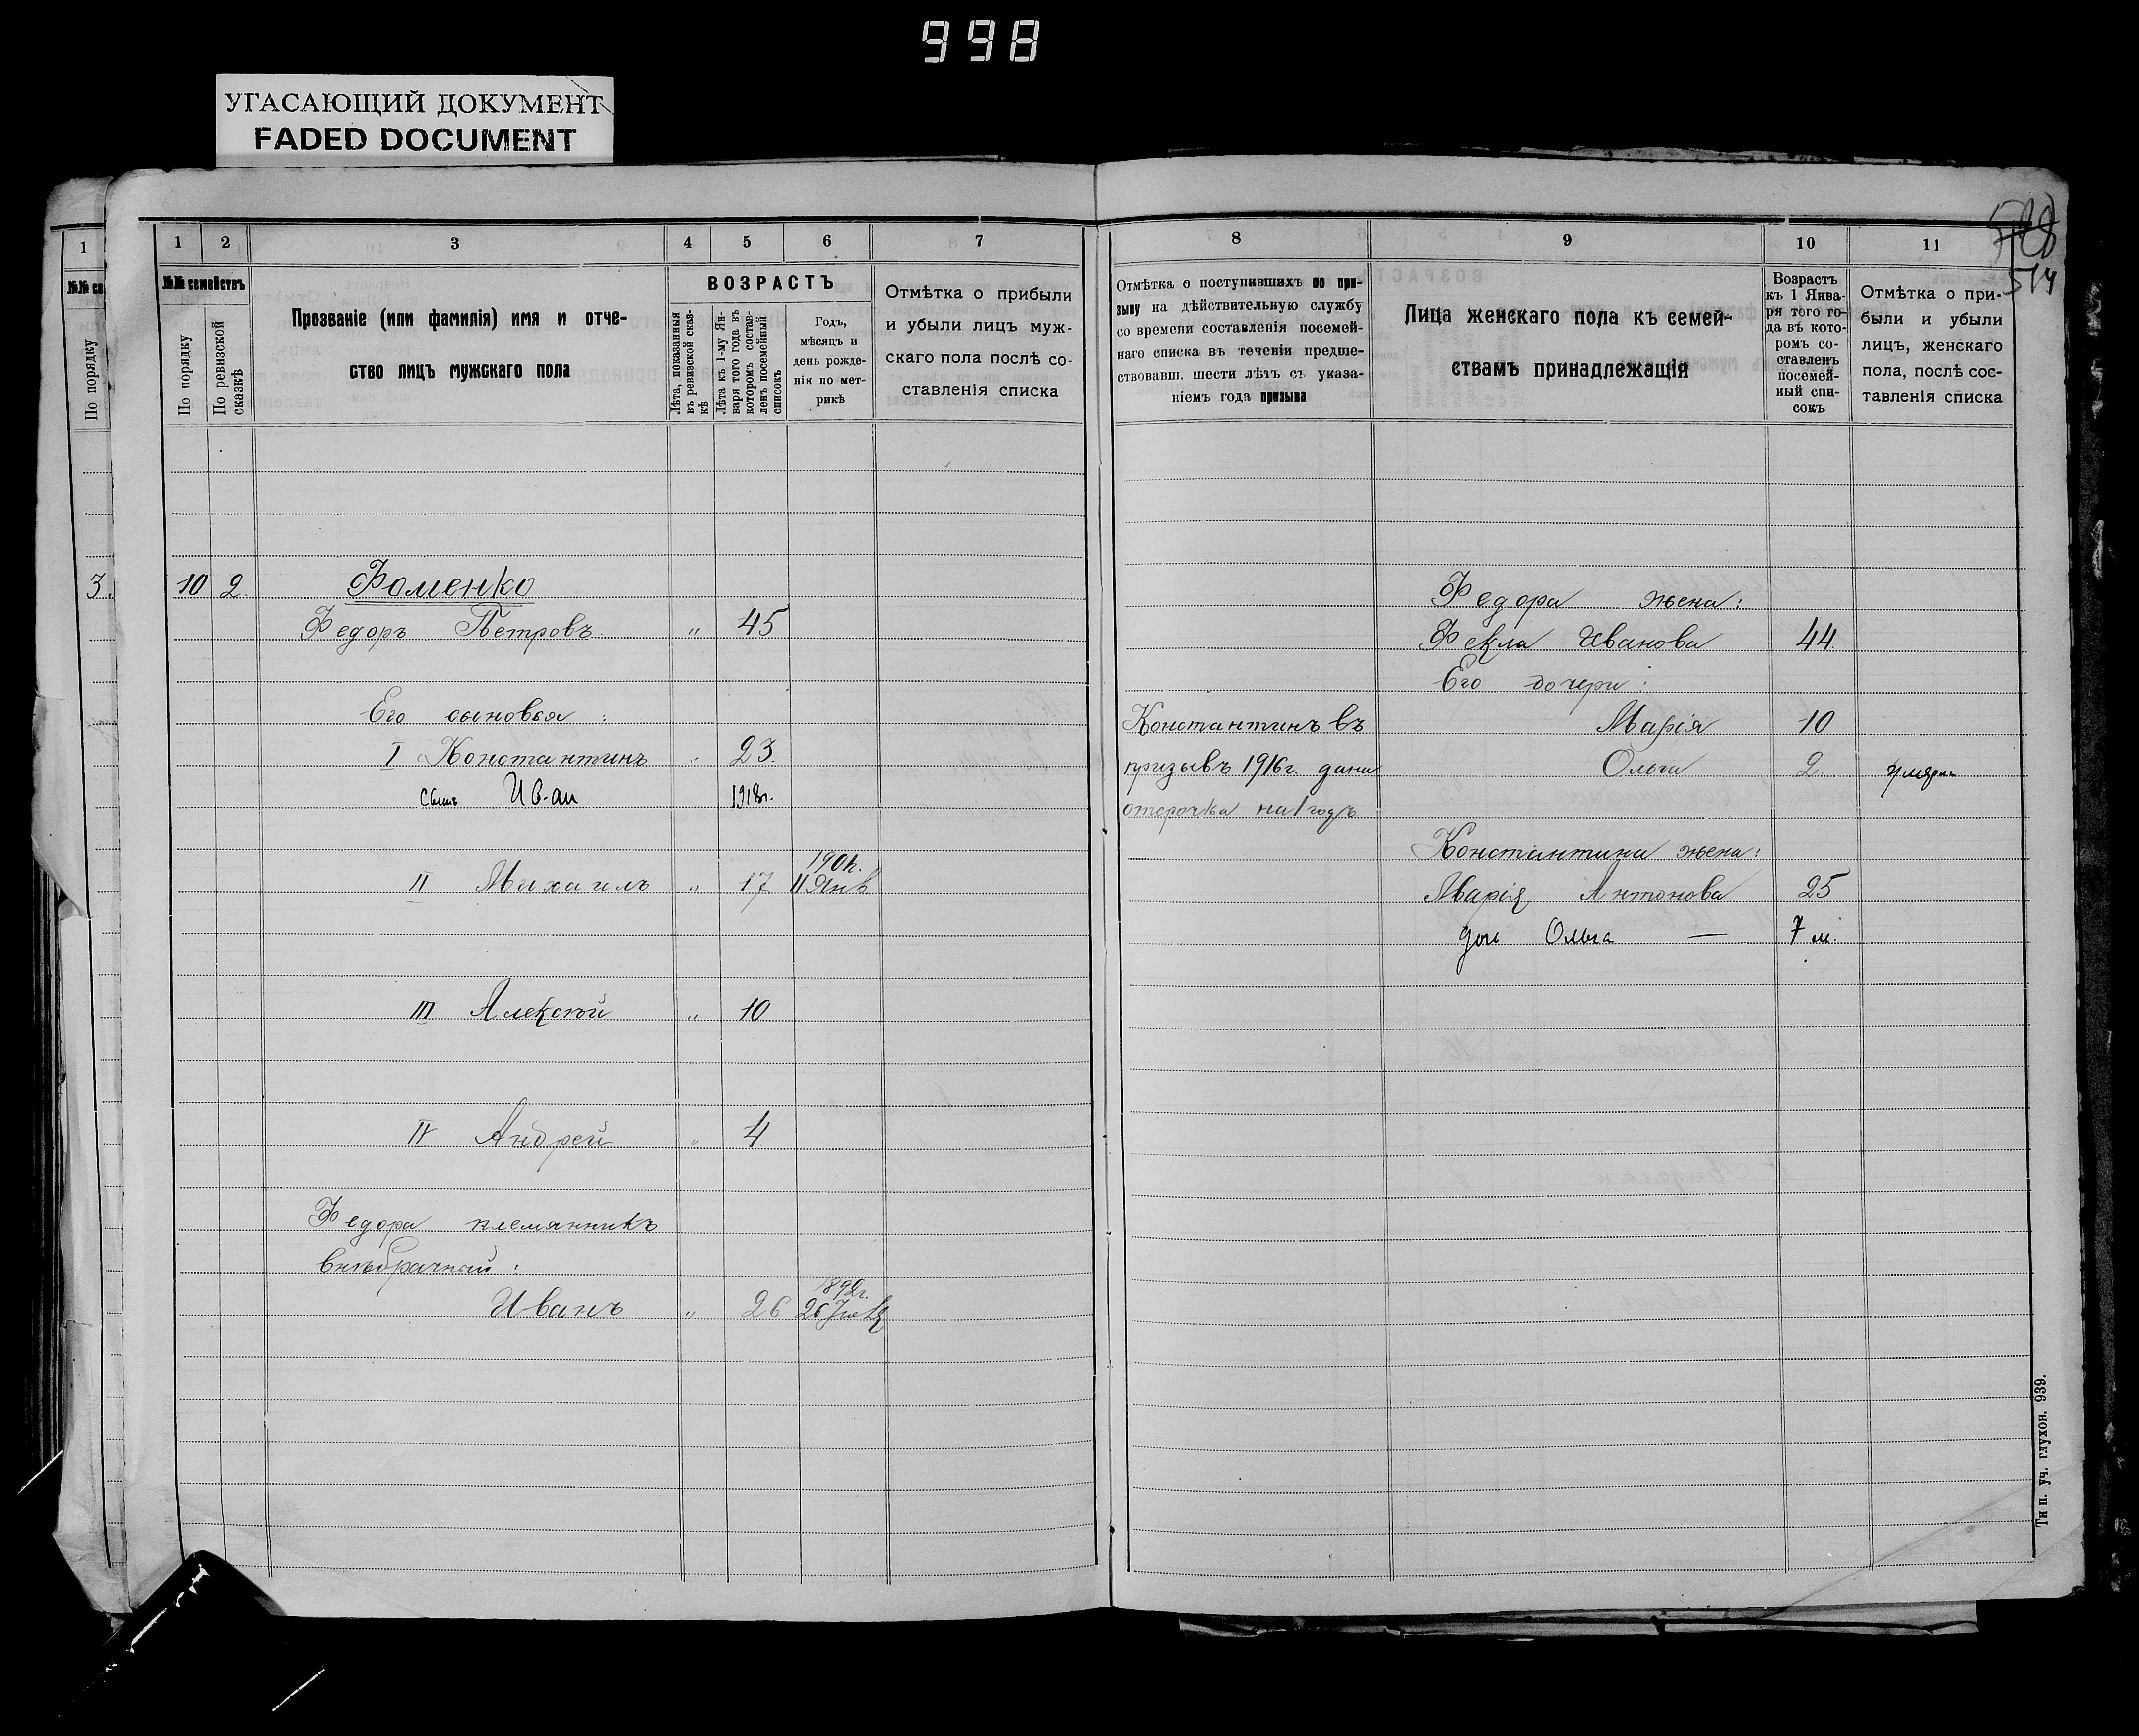 998
УГАСАЮЩИЙ ДОКУМЕНТ
FADED DOCUMENT
528
514
1
№№ се
По порядку
3.
1 2 3 4 5 6 7
№№ семействъ
По порядку
По ревизской сказкѣ
Прозваніе (или фамилія) имя и отче-
ство лицъ мужскаго пола
ВОЗРАСТЪ
Лѣта, показанныя
въ ревизской сказ-
кѣ
Лѣта къ 1-му Ян-
варя того года въ
которомъ состав-
ленъ посемейный
списокъ
Годъ,
мѣсяцъ и
день рожде-
нія по мет-
рикѣ
Отмѣтка о прибыли
и убыли лицъ муж-
скаго пола послѣ со-
ставленія списка
10 2. Фоменко
Федоръ Петровъ. " 45
Его сыновья :
I Константинъ " 23.
сынъ Иван 1918г.
1901г.
II Михаилъ " 17 11 Янв
III Алексѣй " 10
IV Андрей " 4
Федора племянникъ
внѣбрачный :
1892г.
Иванъ " 26 26
8 9 10 11
Отмѣтка о поступившихъ по при-
зыву на дѣйствительную службу
со времени составленія посемей-
наго списка въ теченіи предше-
ствовавш. шести лѣтъ съ указа-
ніемъ года призыва
Лица женскаго пола къ семей-
ствамъ принадлежащія
Возрастъ
къ 1 Янва-
ря того го-
да въ кото-
ромъ со-
ставленъ
посемей-
ный спи-
сокъ
Отмѣтка о при-
были и убыли
лицъ, женскаго
пола, послѣ сос-
тавленія списка
Федора жена:
Фекла Иванова 44.
Его дочери :
Константинъ въ Марія 10
призывъ 1916г. дана Ольга 2 умерла
отсрочка на 1 годъ
Константина жена:
Марія Антонова 25
дочь Ольга — 7 м.
Тип. уч. глухон. 939.